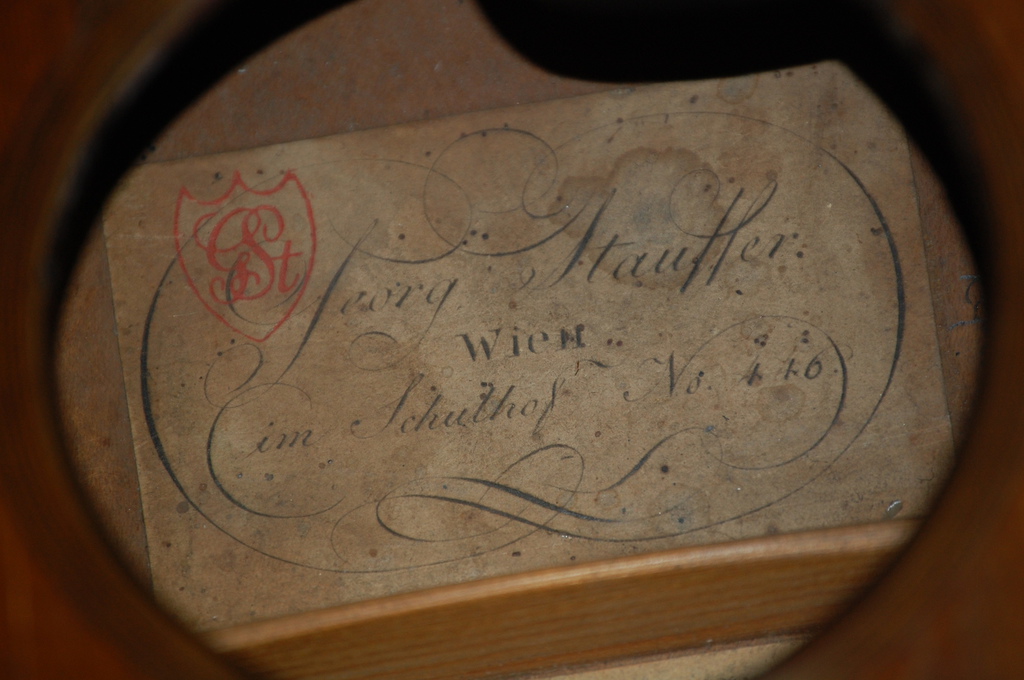 GSt
Georg Stauffer.
Wien
im Schulhof No. 446.